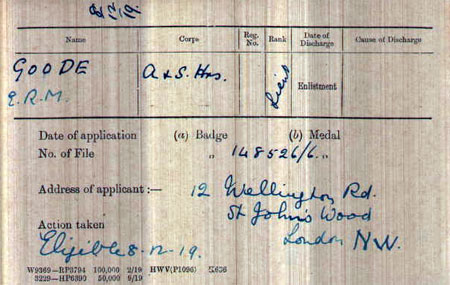 Name Corps Reg. No. Rank Date of Discharge Cause of Discharge
GOODE A & S. Hrs. Lieut Enlistment
E.R.M.
Date of application (a) Badge (b) Medal
No. of File „ 148526/6 „
Address of applicant :— 12 Wellington Rd.
St John's Wood
London N.W.
Action taken
Eligible 8-12-19.
W9369—RP3794 100,000 2/19 HWV(P1096) K636
3229—HP6390 50,000 9/19